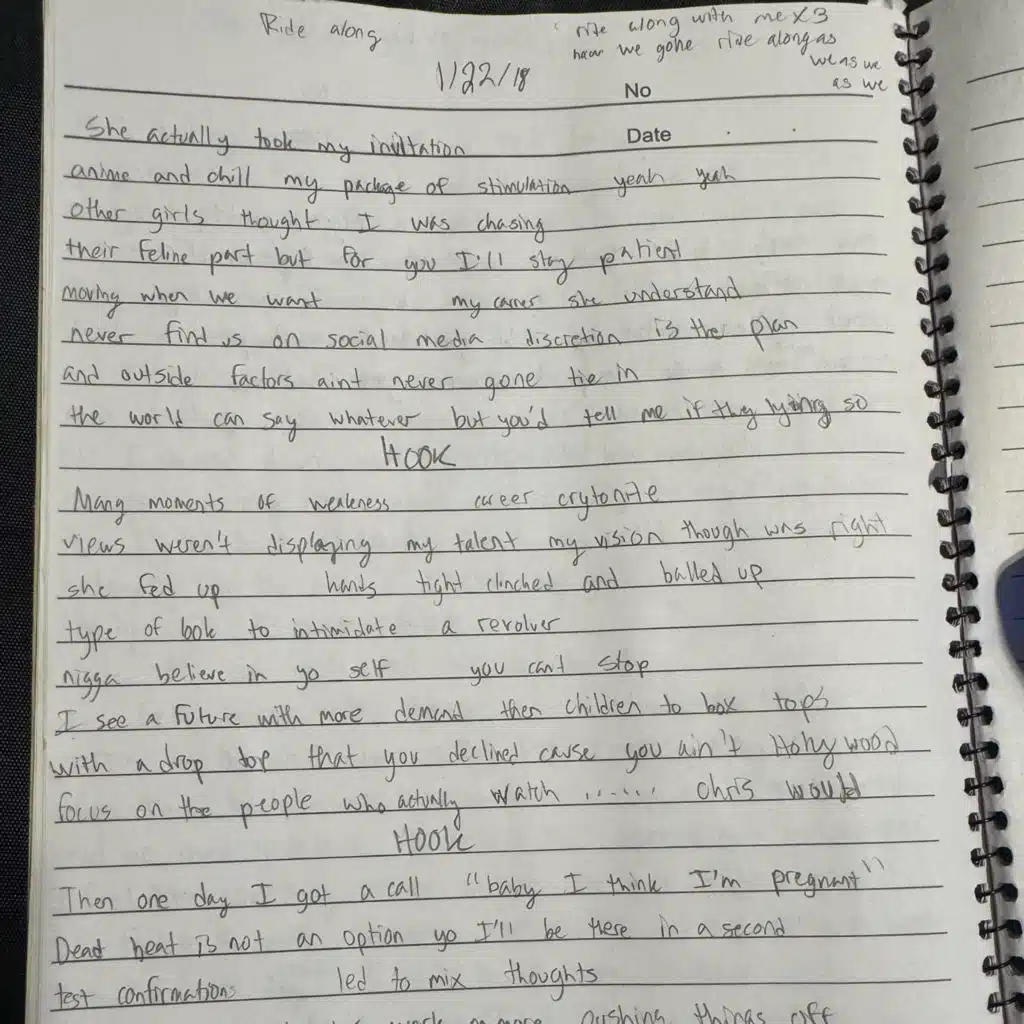 Ride along
ride along with me x3
how we gone ride along as
we as we
as we
1/22/18
No
Date
She actually took my invitation
anime and chill my package of stimulation yeah yeah
other girls thought I was chasing
their feline part but for you I'll stay patient
moving when we want my career she understand
never find us on social media discretion is the plan
and outside factors aint never gone tie in
the world can say whatever but you'd tell me if they lying so
HOOK
Many moments of weakness career crytonite
views weren't displaying my talent my vision though was right
she fed up hands tight clinched and balled up
type of look to intimidate a revolver
nigga believe in yo self you cant stop
I see a future with more demand then children to box tops
with a drop top that you declined cause you ain't Hollywood
focus on the people who actually watch ...... Chris would
HOOK
Then one day I got a call "baby I think I'm pregnant"
Dead beat is not an option yo I'll be there in a second
test confirmations led to mix thoughts
work no more pushing things off